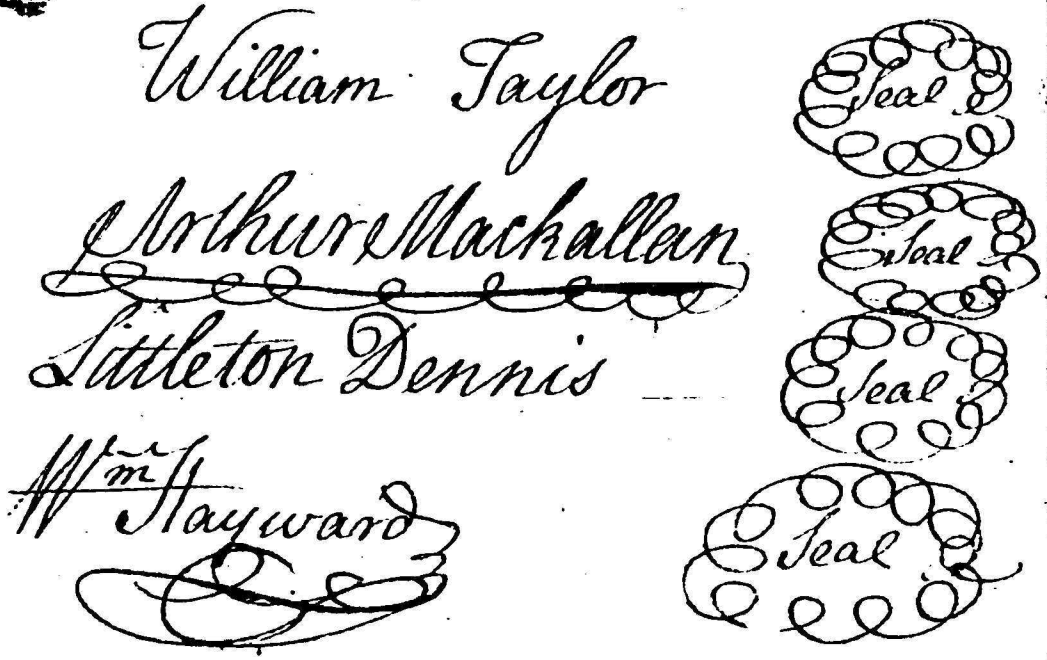 William Taylor Seal
Arthur Mackallan Seal
Littleton Dennis Seal
Wm Hayward Seal